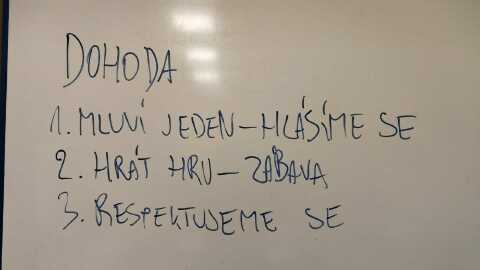 DOHODA
1. MLUVÍ JEDEN – HLÁSÍME SE
2. HRÁT HRU – ZÁBAVA
3. RESPEKTUJEME SE